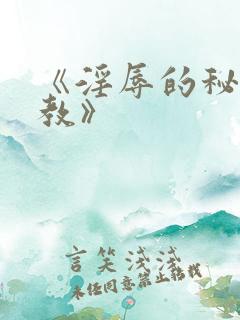 《淫辱的秘
教》
言笑浅浅
未经同意禁止转载